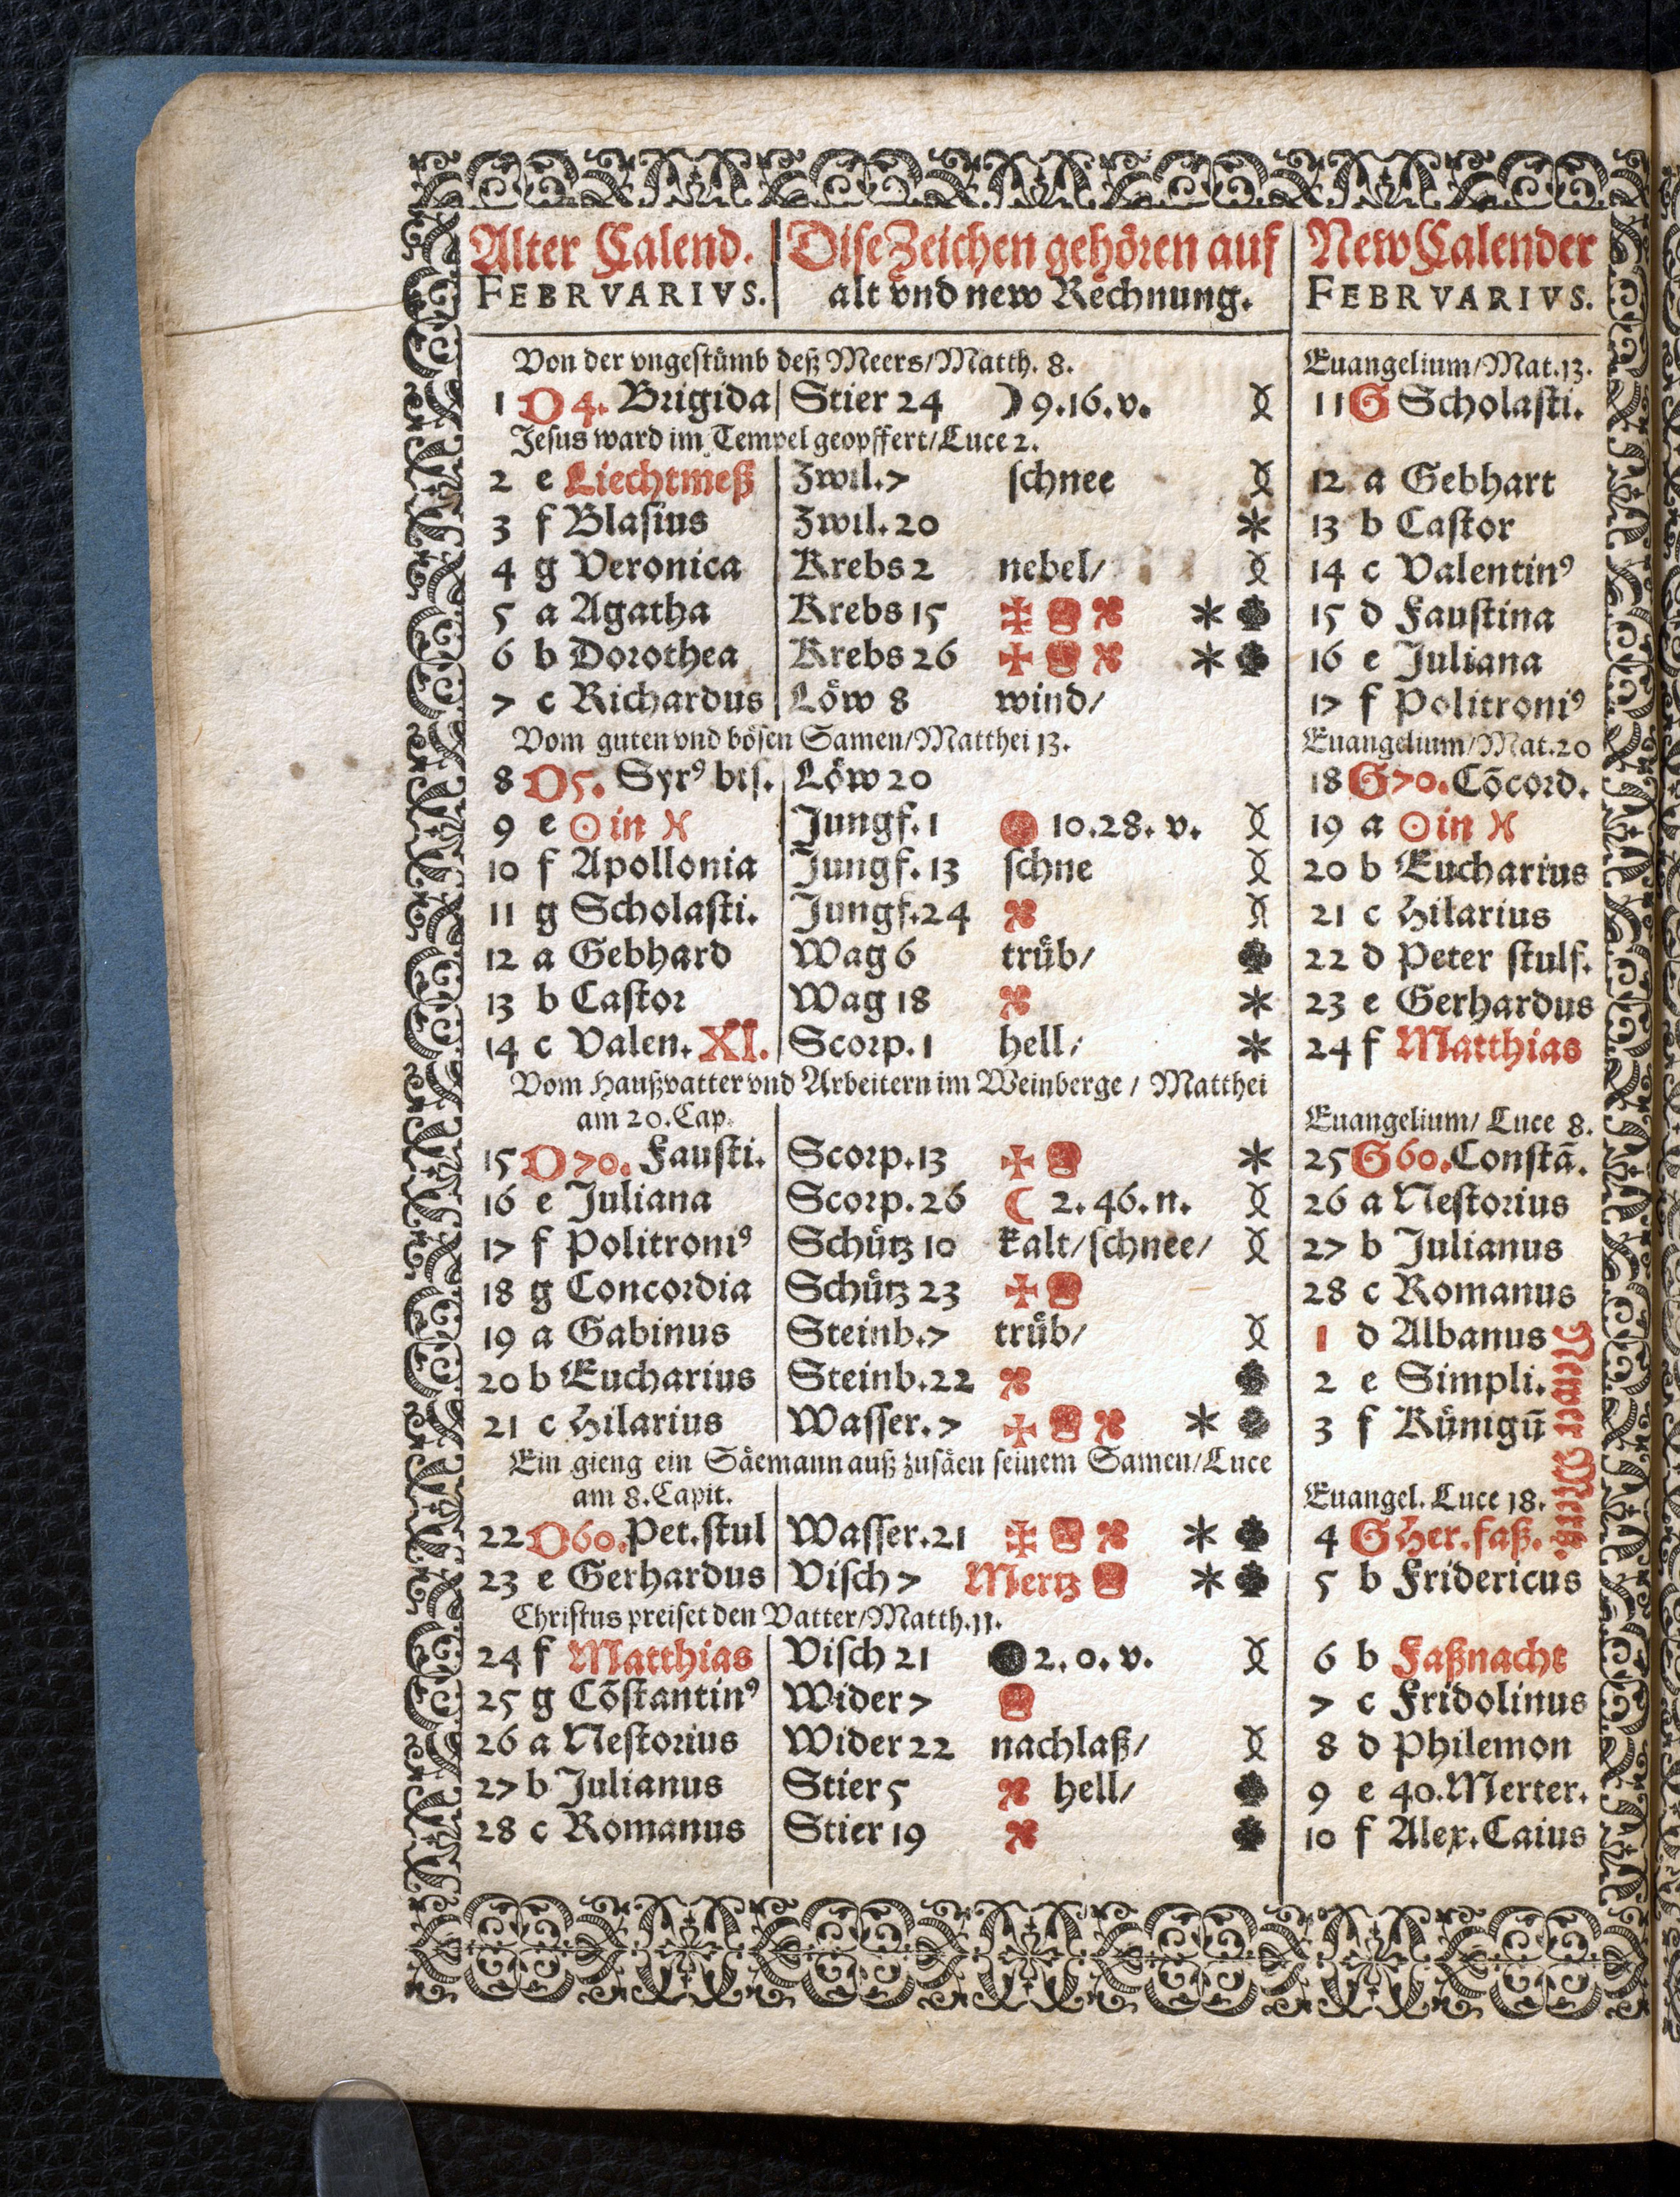 Alter Calend. Dise Zeichen gehören auf New Calender
FEBRVARIVS. alt vnd new Rechnung. FEBRVARIVS.
Von der vngestümb deß Meers/Matth. 8. Euangelium/Mat.13.
1 D 4. Brigida Stier 24 ☽ 9.16.v. 11 G Scholasti.
Jesus ward im Tempel geopffert/Luce 2.
2 e Liechtmeß Zwil.7 schnee 12 a Gebhart
3 f Blasius Zwil.20 * 13 b Castor
4 g Veronica Krebs 2 nebel/ 14 c Valentinꝰ
5 a Agatha Krebs 15 ✠ * 15 d Faustina
6 b Dorothea Krebs 26 ✠ * 16 e Juliana
7 c Richardus Löw 8 wind/ 17 f Politroniꝰ
Vom guten vnd bösen Samen/Matthei 13. Euangelium/Mat.20
8 D5. Syrꝰ bis. Löw 20 18 G70.Cōcord.
9 e ☉ in ♓ Jungf.1 10.28.v. 19 a ☉ in ♓
10 f Apollonia Jungf.13 schne 20 b Eucharius
11 g Scholasti. Jungf.24 21 c Hilarius
12 a Gebhard Wag 6 trüb/ 22 d Peter stulf.
13 b Castor Wag 18 * 23 e Gerhardus
14 c Valen. XI. Scorp.1 hell/ * 24 f Matthias
Vom Haußvatter vnd Arbeitern im Weinberge / Matthei
am 20.Cap. Euangelium/ Luce 8.
15 D70. Fausti. Scorp.13 ✠ * 25 G60.Constā.
16 e Juliana Scorp.26 ☾ 2.46.n. 26 a Nestorius
17 f Politroniꝰ Schütz 10 kalt/schnee/ 27 b Julianus
18 g Concordia Schütz 23 ✠ 28 c Romanus
19 a Gabinus Steinb.7 trüb/ 1 d Albanus
20 b Eucharius Steinb.22 2 e Simpli.
21 c Hilarius Wasser.7 ✠ * 3 f Künigū
Ein gieng ein Säemann auß zusäen seinem Samen/Luce
am 8.Capit. Euangel. Luce 18.
22 D60.Pet.stul Wasser.21 ✠ * 4 G Her.faß.
23 e Gerhardus Visch 7 Mertz * 5 b Fridericus
Christus preiset den Vatter/Matth.11.
24 f Matthias Visch 21 ● 2.0.v. 6 b Faßnacht
25 g Cōstantinꝰ Wider 7 7 c Fridolinus
26 a Nestorius Wider 22 nachlaß/ 8 d Philemon
27 b Julianus Stier 5 hell/ 9 e 40.Merter.
28 c Romanus Stier 19 10 f Alex.Caius